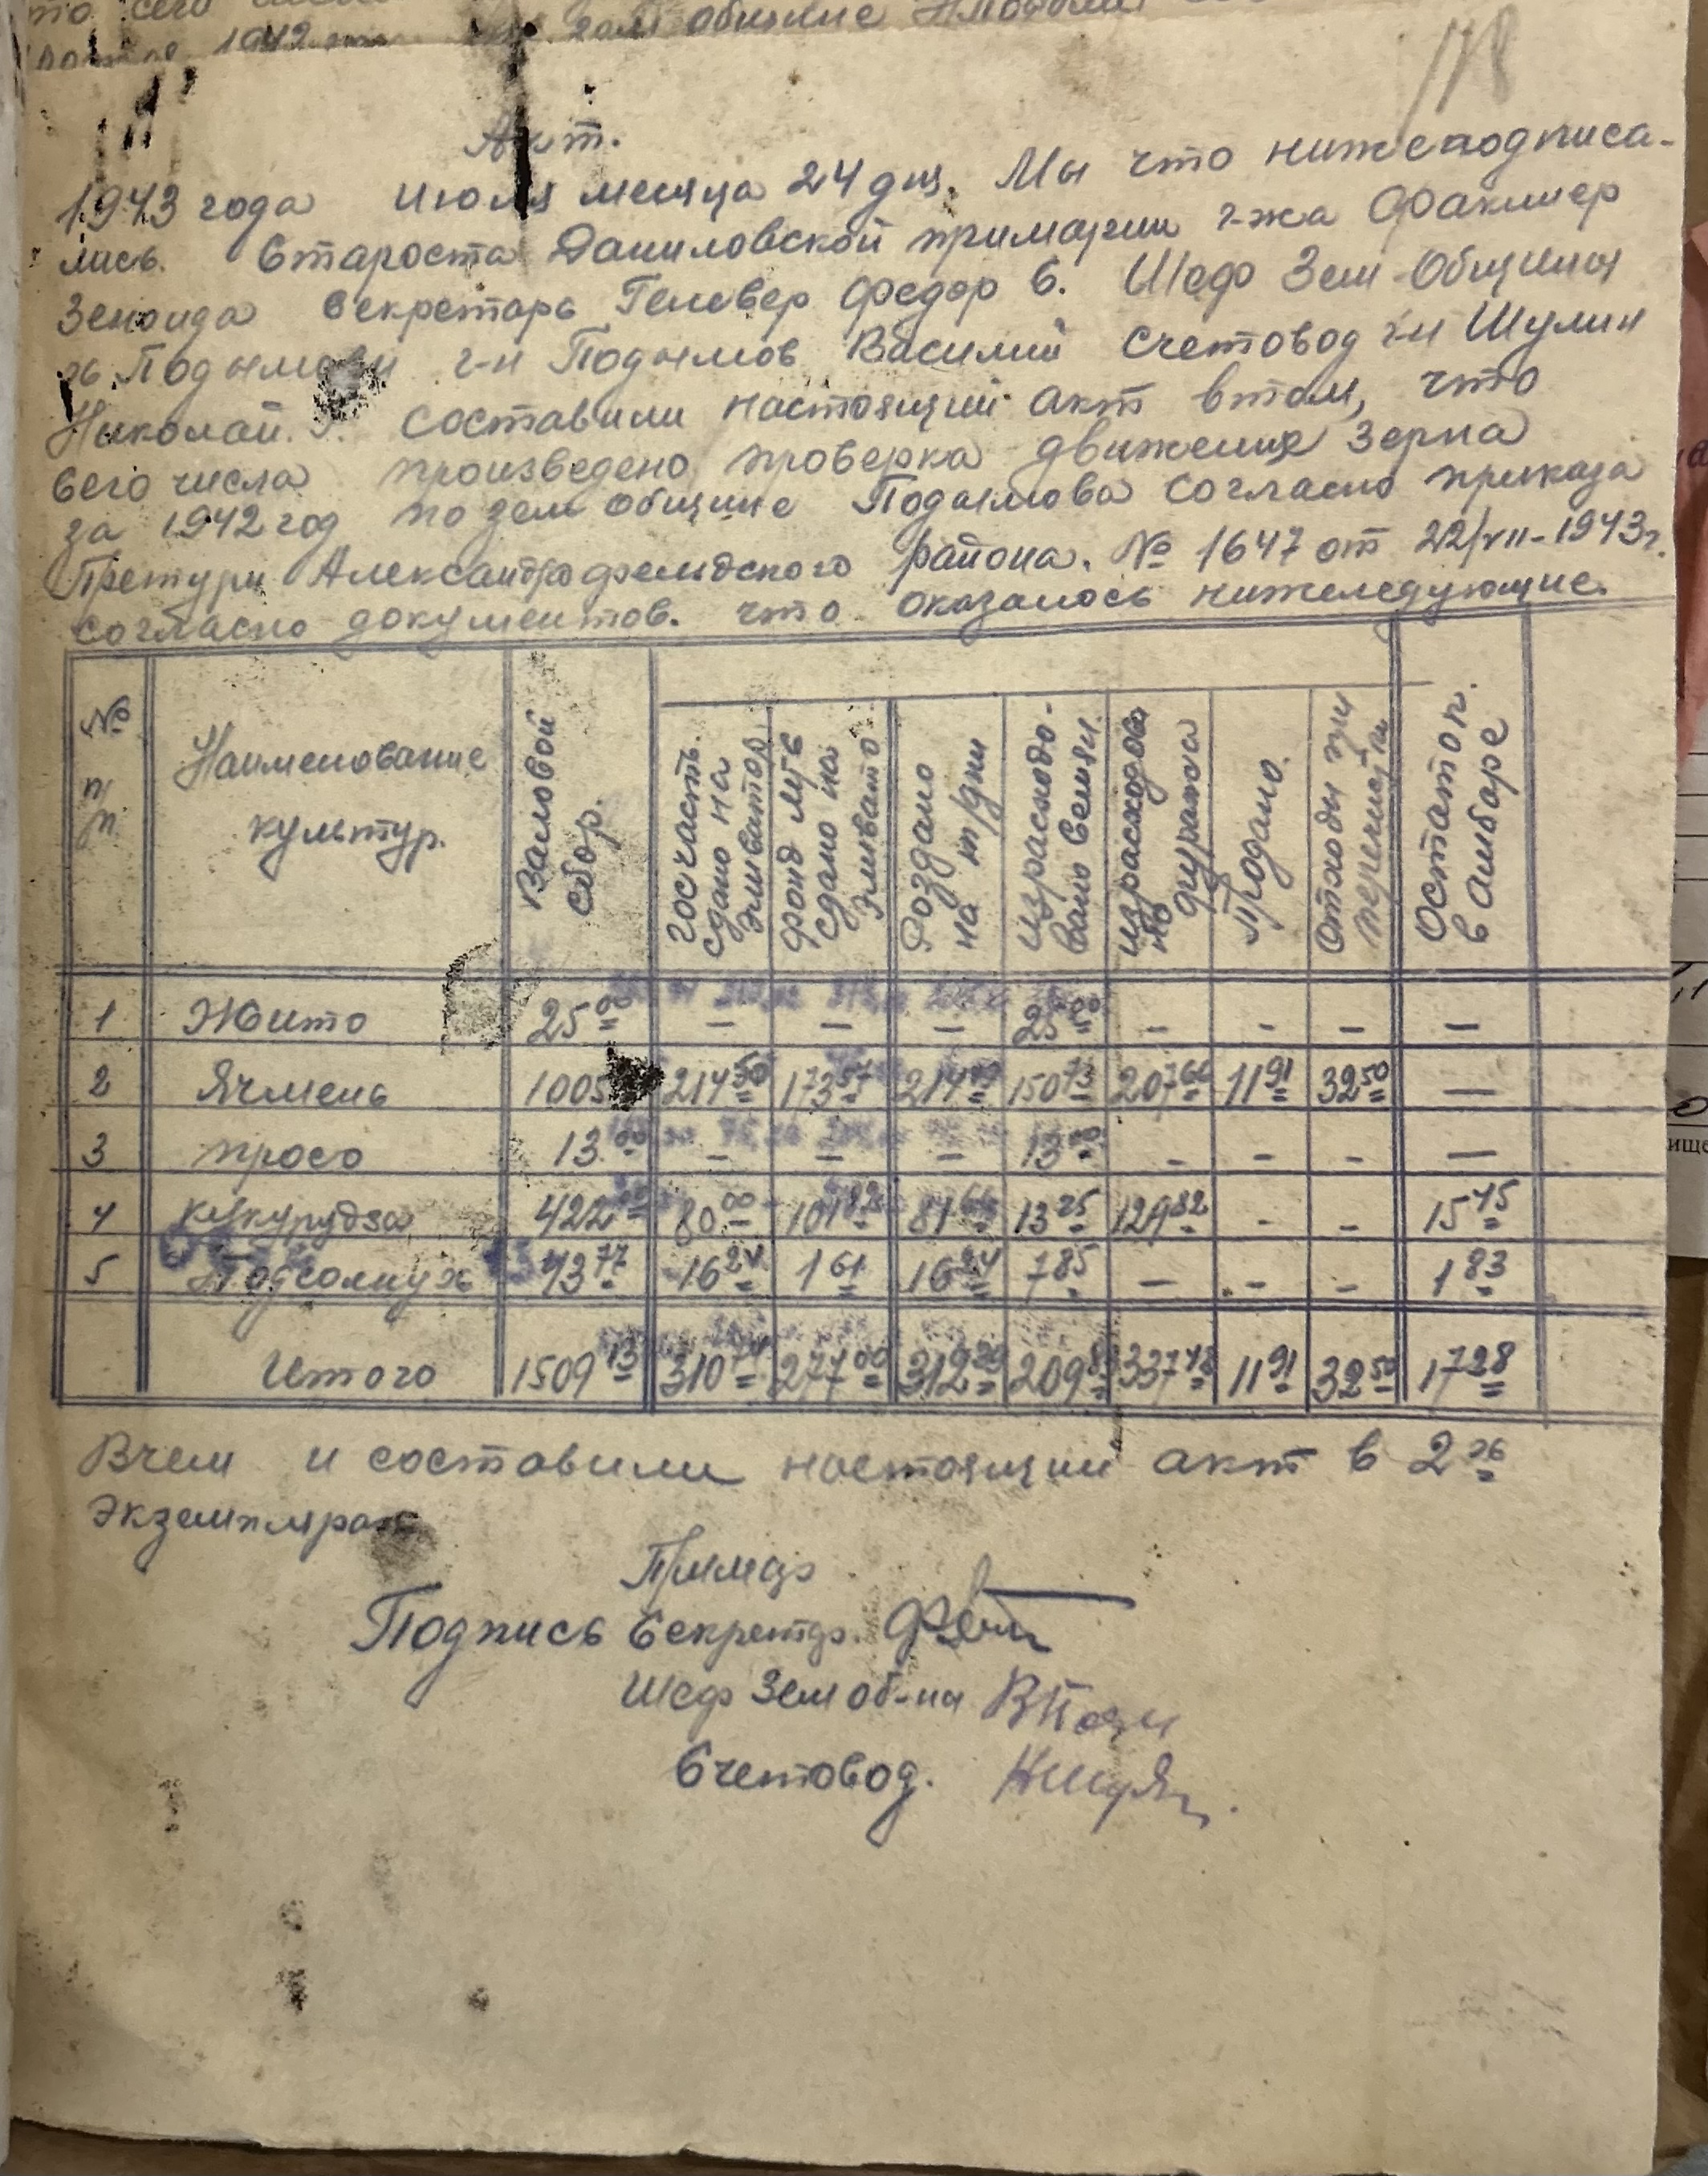 то сего
1942 общине
118
Акт.
1943 года июля месяца 24 дня. Мы что нижеподписа-
лись. Староста Даниловской примарии г-жа Факинер
Зеноида Секретарь Гелевер Федор С. Шеф Зем Общины
Подымови г-н Подымов Василий счетовод г-н Шулин
Николай. составили настоящий акт втом, что
Сего числа произведено проверка движение Зерна
за 1942 год по зем общине Подымова Согласно приказа
Претури Александрофельдского района. № 1647 от 22/VII-1943г.
согласно документов. что оказалось нижеледующие.
№ п/п. Наименование культур. Валовой сбор. Госчасть. сдано на Эливатор Фонд сдано на Эливато. Роздано на т/дни израсходо- вано Семян. израсходова но фуража Продано. Отходы при Остаток. в амбаре
1 Жито 25 00 – – – 25 00 – – – –
2 Ячмень 1005 214 50 173 57 214 150 73 207 66 11 91 32 50 —
3 просо 13 00 – – – 13 00 – – – —
4 кукурудза 422 80 00 101 82 81 66 13 25 129 82 – – 15 45
5 Подсолнух 43 77 16 24 1 61 16 24 7 85 – – – 1 83
Итого 1509 13 310 74 277 00 312 209 337 48 11 91 32 50 17 28
Вчем и составили настоящий акт в 2 ох
Экземплярах
Примар
Подпись Секретар.
Шеф Зем об-ни
Счетовод.